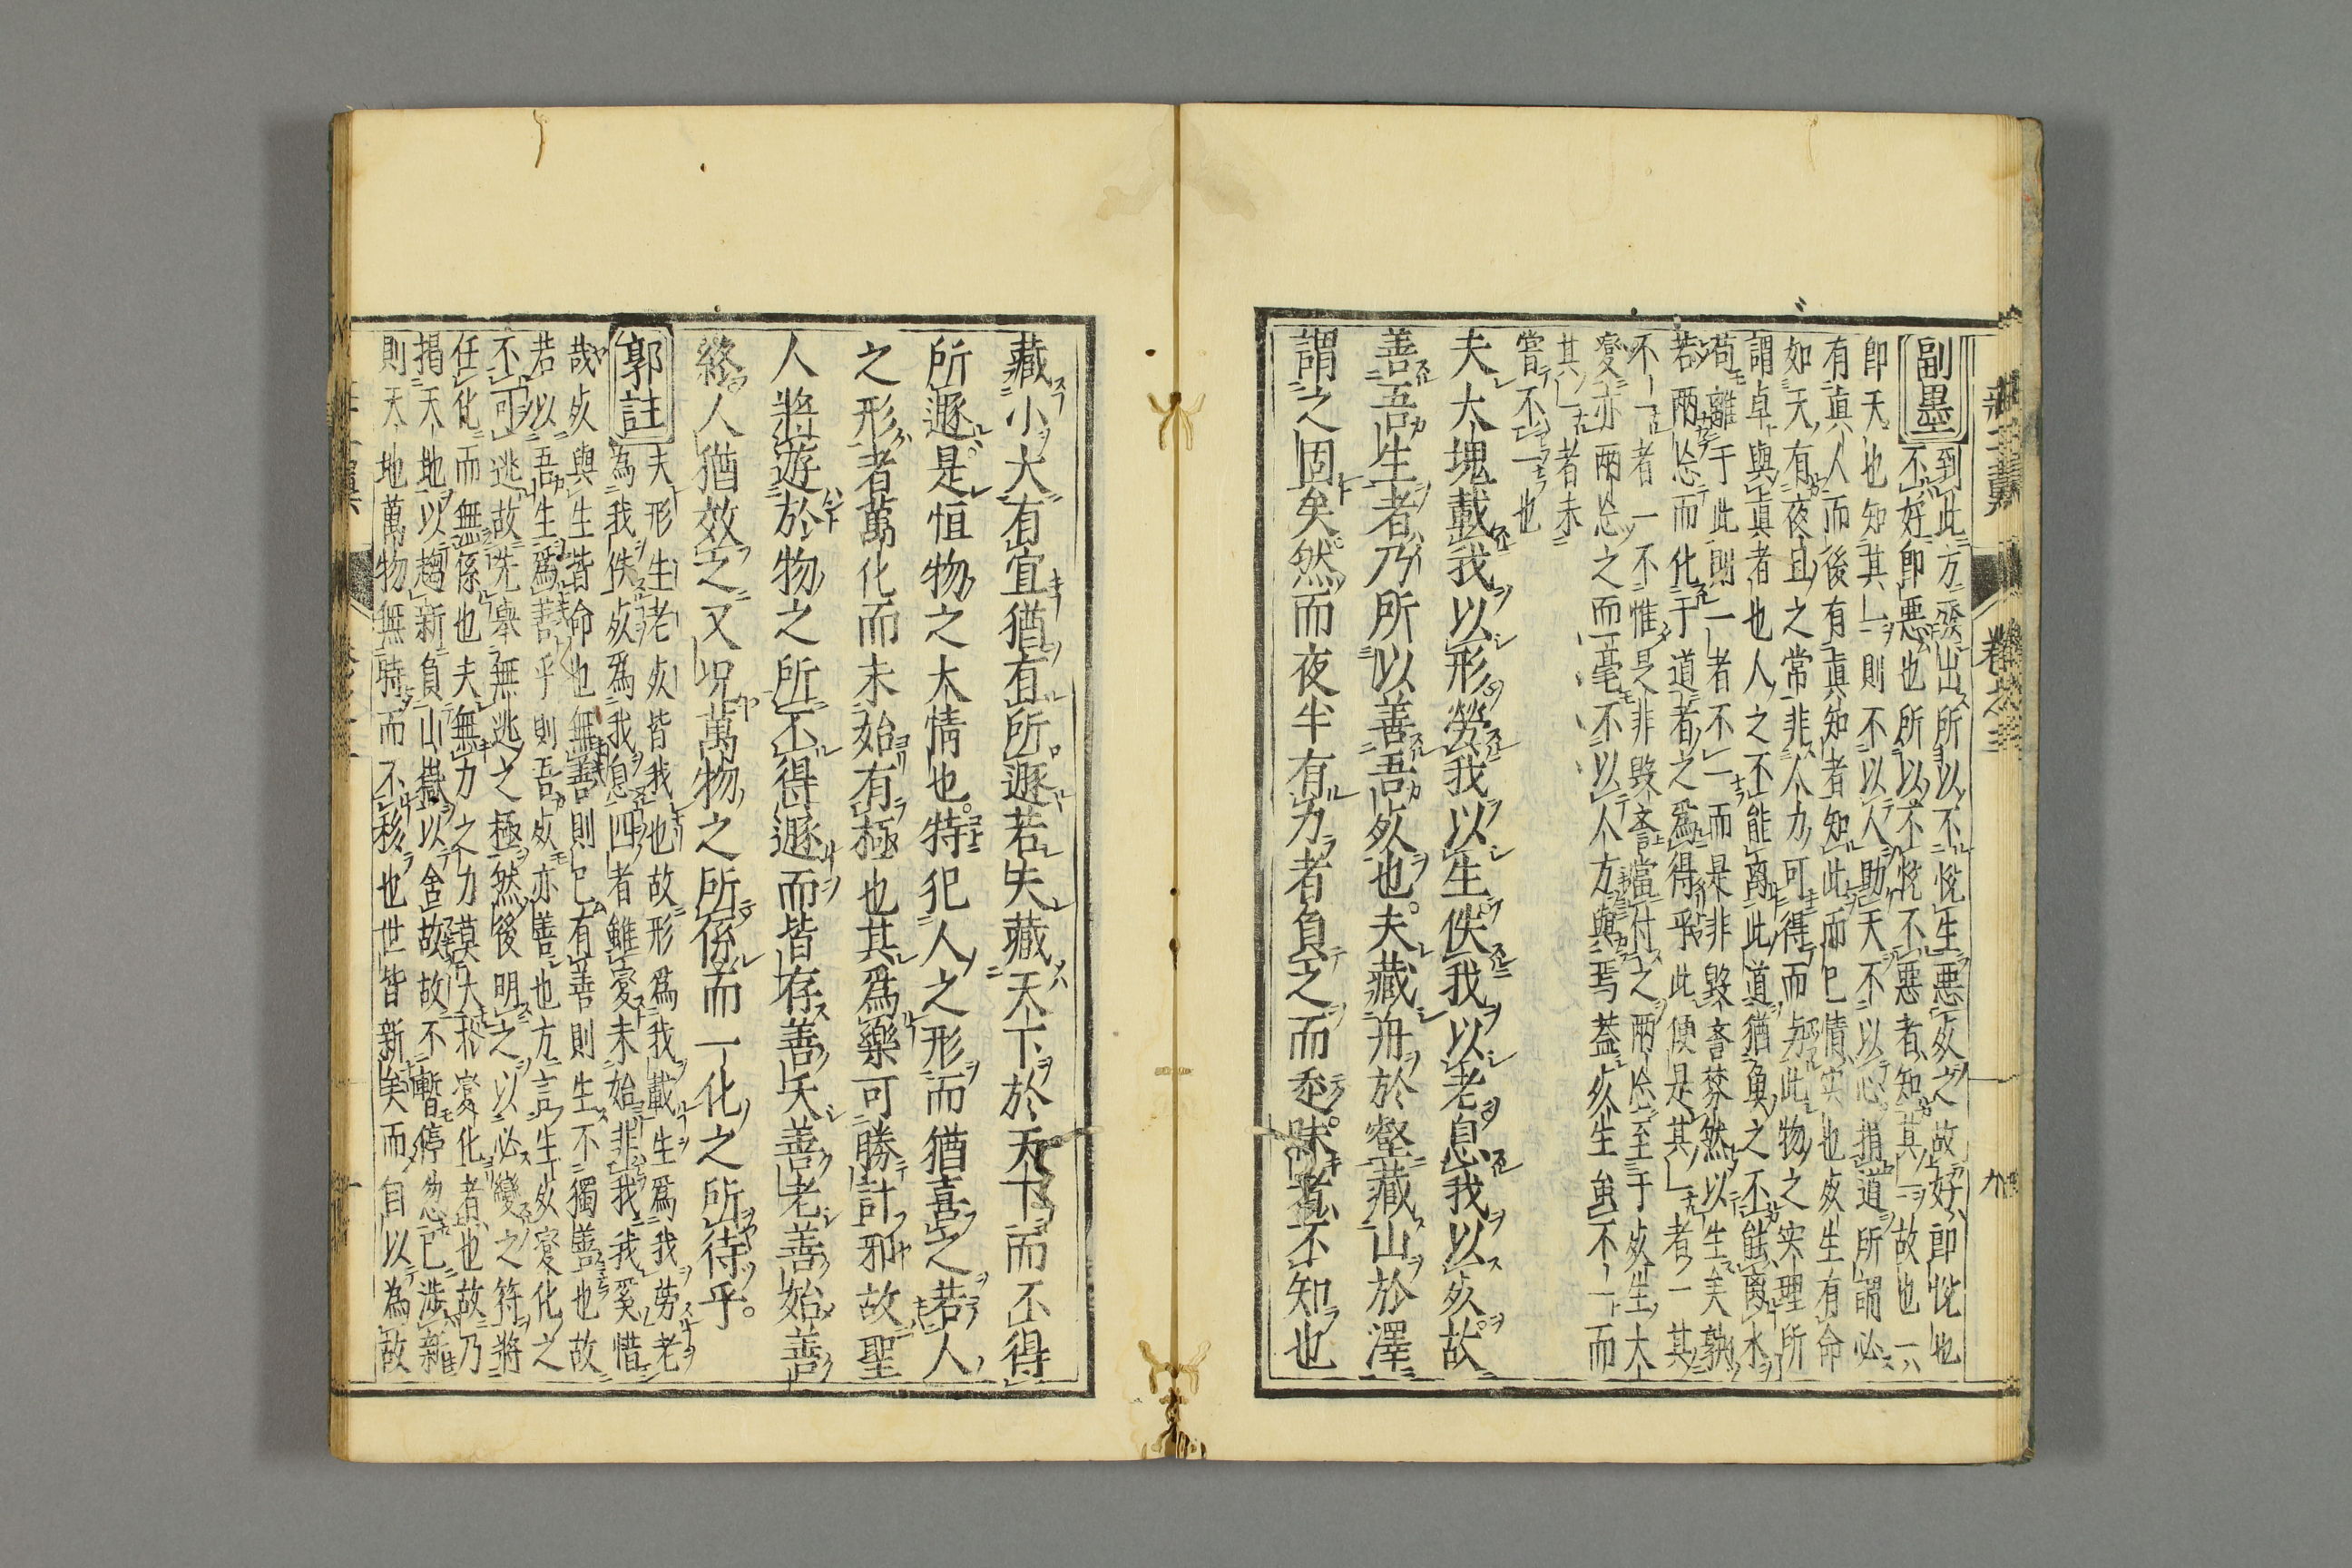 莊子翼 卷之三 九
副墨
到此方發出所以不悅生惡死之故好即悅也
不好即惡也所以不悅不惡者知其一故也一
即天也知其一則不以人助天不以心捐道所謂必
有真人而後有真知者知此而已情实也死生有命
如天有夜旦之常非人力可得而与此物之实理所
謂卓與真者也人之不能离此道猶魚之不能离水
苟離于此則一者不一而是非毀誉棼然以生矣孰
若兩忘而化于道者之為得乎此便是其一者一其
不一者一不惟是非毀誉當付之兩忘至于死生大
變亦兩忘之而一毫不以人方與焉蓋死生虽不一而
其一者未
嘗不一也
夫大塊載我以形勞我以生佚我以老息我以死故
善吾生者乃所以善吾死也夫藏舟於壑藏山於澤
謂之固矣然而夜半有力者負之而走昧者不知也
藏小大有宜猶有所遯若夫藏天下於天下而不得
所遯是恒物之大情也特犯人之形而猶喜之若人
之形者萬化而未始有極也其為樂可勝計邪故聖
人將遊於物之所不得遯而皆存善夭善老善始善
終人猶效之又況萬物之所係而一化之所待乎
郭註
夫形生老死皆我也故形為我載生為我勞老
為我佚死為我息四者雖變未始非我我奚惜
哉死與生皆命也無善則已有善則生不獨善也故
若以吾生為善乎則吾死亦善也方言生死變化之
不可逃故先舉無逃之極然後明之以必變之符將
任化而無係也夫無力之力莫大於變化者也故乃
揭天地以趨新負山嶽以舍故故不暫停忽已涉新
則天地萬物無時而不移也世皆新矣而自以為故